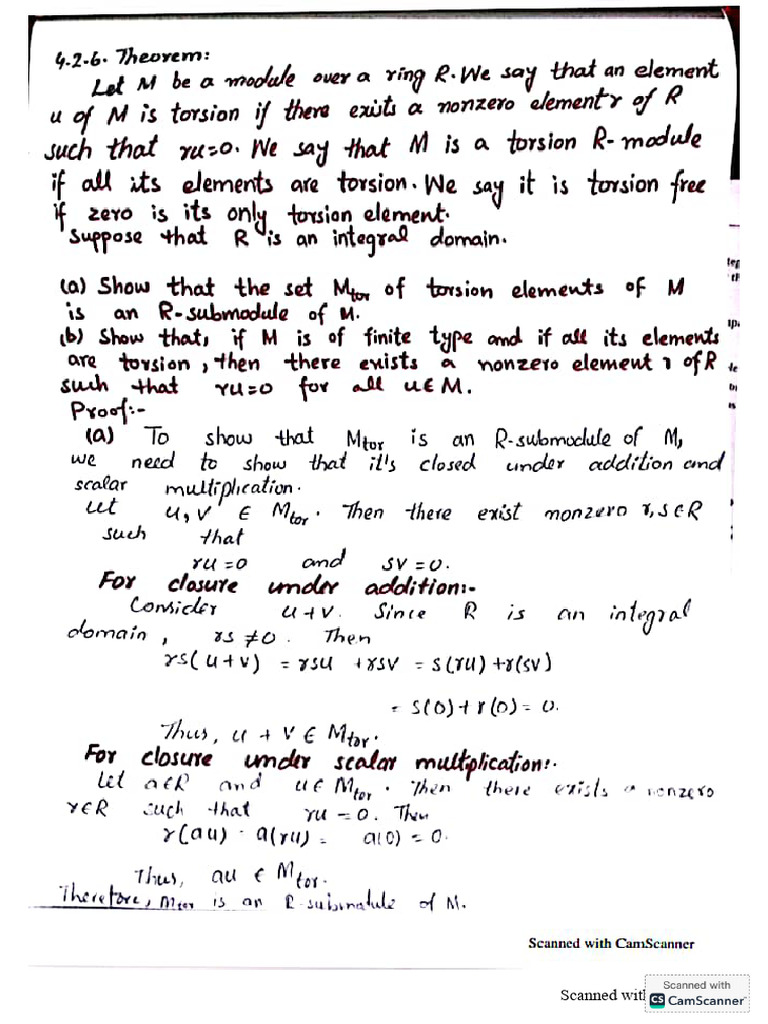 4-2-6. Theorem:
Let M be a module over a ring R. We say that an element
u of M is torsion if there exists a nonzero element r of R
such that ru=0. We say that M is a torsion R-module
if all its elements are torsion. We say it is torsion free
if zero is its only torsion element.
Suppose that R is an integral domain.
(a) Show that the set Mtor of torsion elements of M
is an R-submodule of M.
(b) Show that, if M is of finite type and if all its elements
are torsion, then there exists a nonzero element r of R
such that ru=0 for all u∈M.
Proof:-
(a) To show that Mtor is an R-submodule of M,
we need to show that it's closed under addition and
scalar multiplication.
Let u, v ∈ Mtor. Then there exist nonzero r, s ∈ R
such that
ru=0 and sv=0.
For closure under addition:-
Consider u+v. Since R is an integral
domain, rs ≠ 0. Then
rs(u+v) = rsu + rsv = s(ru) + r(sv)
= s(0) + r(0) = 0.
Thus, u + v ∈ Mtor.
For closure under scalar multplication:-
Let a∈R and u∈ Mtor. Then there exists a nonzero
r∈R such that ru = 0. Then
r(au) = a(ru) = a(0) = 0.
Thus, au ∈ Mtor.
Therefore, Mtor is an R-submodule of M.
Scanned with CamScanner
Scanned with
Scanned with
CS CamScanner